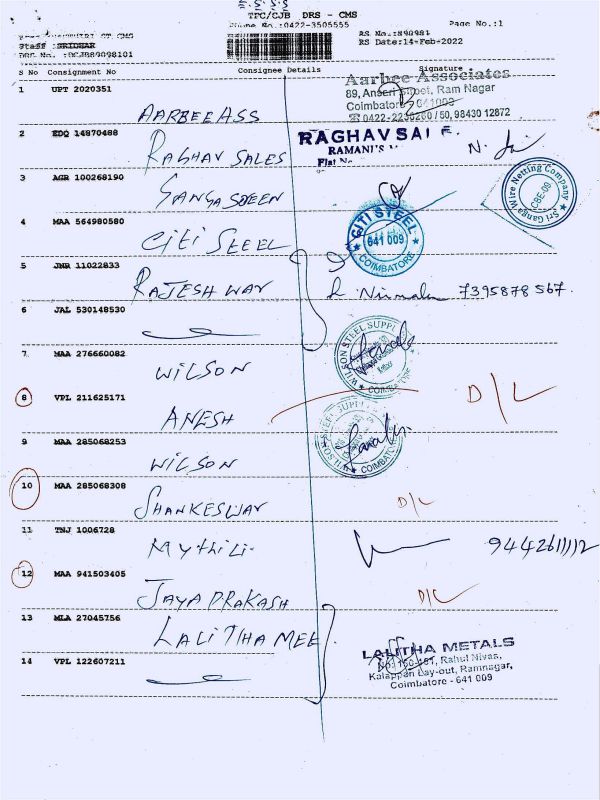 TPC/CJB DRS - CMS
Phone No.:0422-3505555 Page No.:1
ST CMS RS No.:890981
Staff :SRIDHAR RS Date:14-Feb-2022
DRS No. :DCJB89098101
S No Consignment No Consignee Details Signature
1 UPT 2020351
AARBEE ASS
Aarbee Associates
89, Street, Ram Nagar
Coimbatore - 641003
0422-2230260 / 50, 98430 12872
2 EDQ 14870488
RAGHAV SALES
RAGHAV SALE
RAMANI'S
Flat No
3 AGR 100268190
GANGA SCREEN
Sri Ganga Wire Netting Company
CBE-09
4 MAA 564980580
CITI STEEL
CITI STEEL
641 009
COIMBATORE
5 JNR 11022833
RAJESHWAR
Nirmala 7395878567.
6 JAL 530148530
7 MAA 276660082
WILSON
WILSON STEEL SUPPL
COIMBATORE
8 VPL 211625171
ANESH
D/L
9 MAA 285068253
WILSON
WILSON STEEL SUPPL
COIMBATORE
10 MAA 285068308
SHANKESWAR
D/L
11 TNJ 1006728
Mythili
9442611112
12 MAA 941503405
JAYAPRAKASH
D/L
13 MLA 27045756
LALITHA MEE
LALITHA METALS
No: 150-151, Rahul Nivas,
Kalappan Lay-out, Ramnagar,
Coimbatore - 641 009
14 VPL 122607211